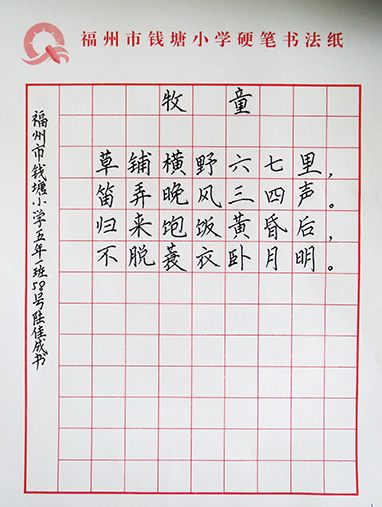 福州市钱塘小学硬笔书法纸
牧童
草铺横野六七里，
笛弄晚风三四声。
归来饱饭黄昏后，
不脱蓑衣卧月明。
福州市钱塘小学五年一班58号陈佳成书